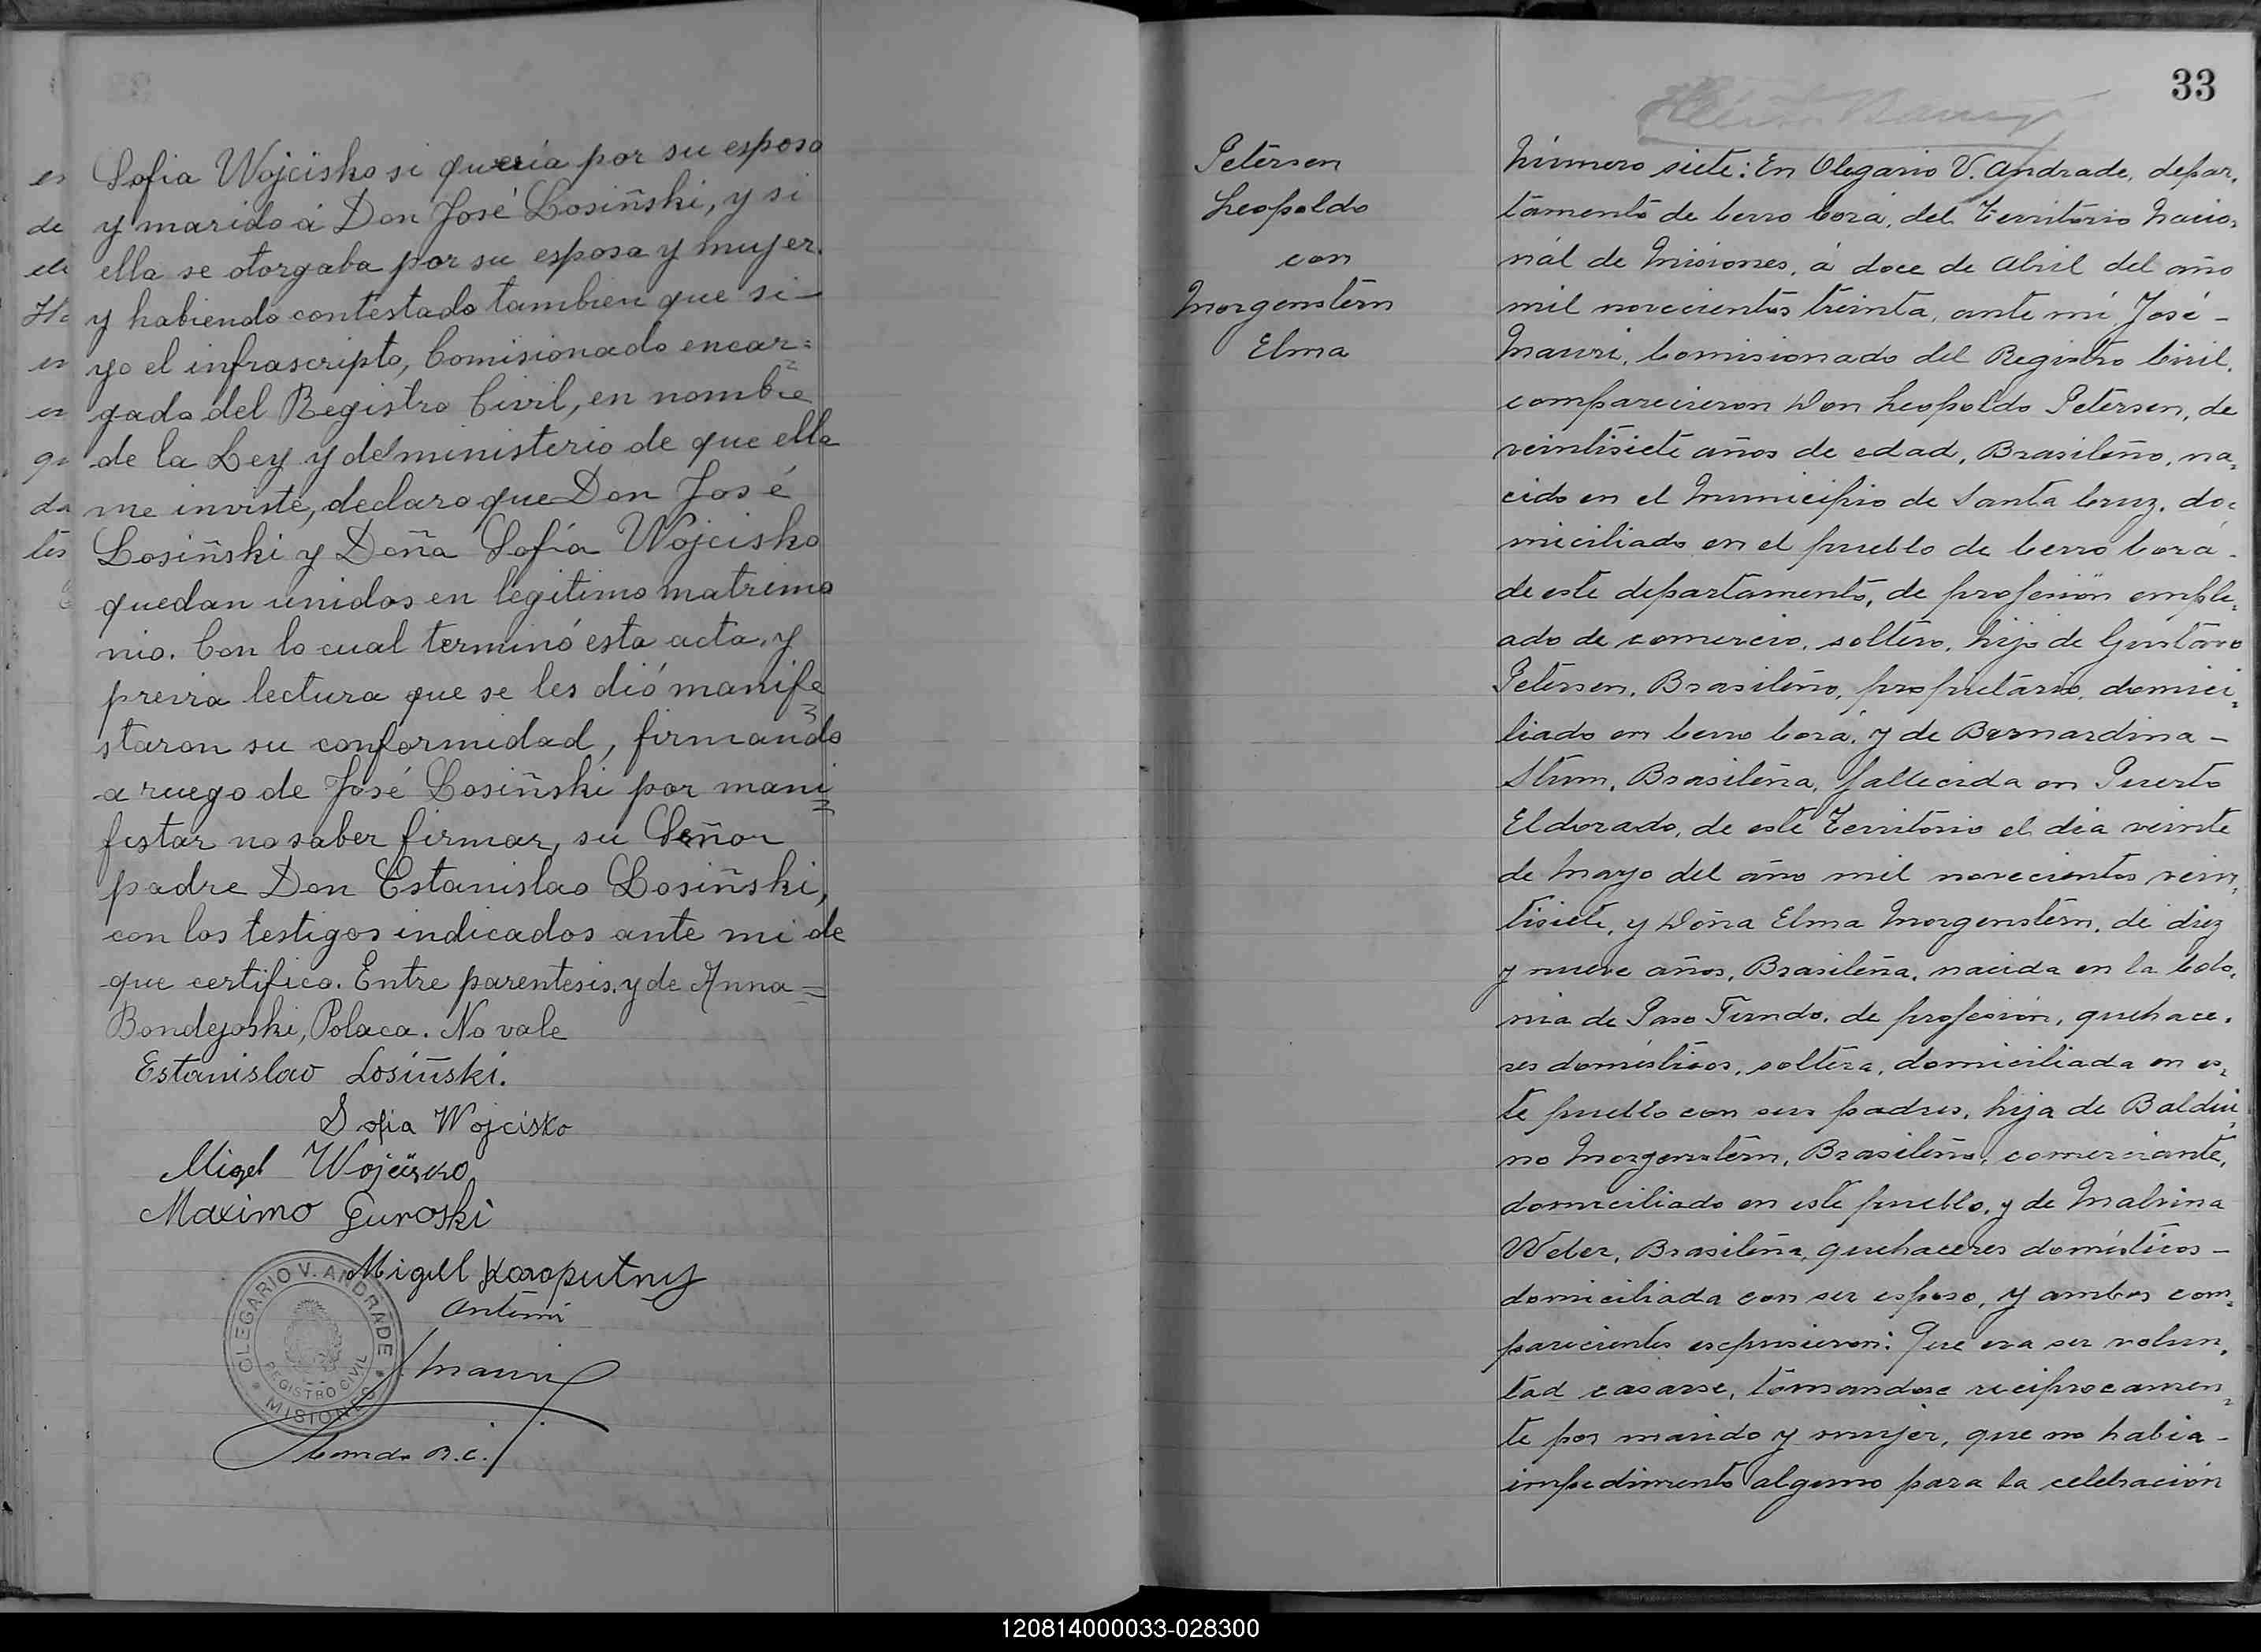 Sofia Wojcisko si quería por su esposo
y marido á Don José Losiñski, y si
ella se otorgaba por su esposa y mujer.
y habiendo contestado tambien que si—
yo el infrascripto, Comisionado encar=
gado del Registro Civil, en nombre
de la Ley y del ministerio de que ella
me inviste, declaro que Don José
Losiñski y Doña Sofía Wojcisko
quedan unidos en legitimo matrimo
nio. Con lo cual terminó esta acta, y
previa lectura que se les dió manife
staron su conformidad, firmando
a ruego de José Losiñski por mani=
festar no saber firmar, su Señor
padre Don Estanislao Losiñski,
con los testigos indicados ante mi de
que certifico. Entre parentesis. y de Anna=
Bondejoski, Polaca. No vale
Estanislao Losiñski.
Sofia Wojcisko
Migel Wojcisko
Maximo Guroski
Migell Karaputny
Ante mi
J. Mauri
Comdo R.C.
OLEGARIO V. ANDRADE
REGISTRO CIVIL
* MISIONES *
33
Petersen
Leopoldo
con
Morgenstern
Elma
Número siete: En Olegario V. Andrade, depar,
tamento de Cerro Corá, del Territorio Nacio,
nál de Misiones, á doce de Abril del año
mil novecientos treinta, ante mí José –
Mauri, Comisionado del Registro Civil,
comparecieron Don Leopoldo Petersen, de
veintisiete años de edad, Brasileño, na,
cido en el Municipio de Santa Cruz, do,
miciliado en el pueblo de Cerro Corá –
de este departamento, de profesión emple,
ado de comercio, soltero, hijo de Gustavo
Petersen, Brasileño, propietario, domici,
liado en Cerro Corá, y de Bernardina –
Strim, Brasileña, fallecida en Puerto
Eldorado, de este Territorio el día veinte
de Mayo del año mil novecientos vein,
tisiete, y Doña Elma Morgenstern, de diez
y nueve años, Brasileña, nacida en la Colo,
nia de Paso Fundo, de profesión, quehace,
res domésticos, soltera, domiciliada en es,
te pueblo con sus padres, hija de Baldui,
no Morgenstern, Brasileño, comerciante,
domiciliado en este pueblo, y de Malvina
Weber, Brasileña, quehaceres domésticos –
domiciliada con su esposo, y ambos com,
parecientes expusieron: Que era su volun,
tad casarse, tomandose reciprocamen,
te por marido y mujer, que no habia –
impedimento alguno para la celebración
120814000033-028300